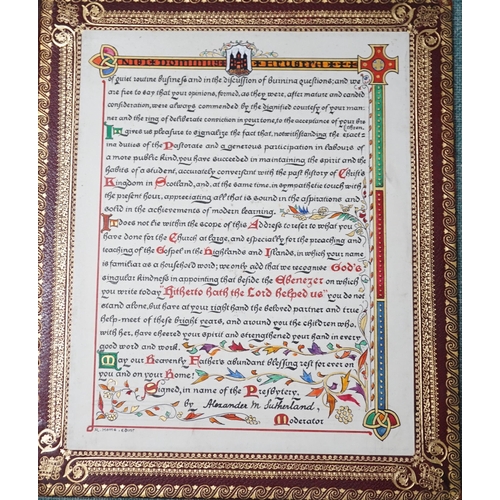 NISI DOMINUS FRUSTRA
of quiet routine business and in the discussion of burning questions; and we
are free to say that your opinions, formed, as they were, after mature and candid
consideration, were always commended by the dignified courtesy of your man-
ner and the ring of deliberate conviction in your tone, to the acceptance of your Bre-
thren.
It gives us pleasure to signalize the fact that, notwithstanding the exact
ing duties of the Pastorate and a generous participation in labours of
a more public kind, you have succeeded in maintaining the spirit and the
habits of a student, accurately conversant with the past history of Christ's
Kingdom in Scotland, and, at the same time, in sympathetic touch with
the present hour, appreciating all that is sound in the aspirations and
solid in the achievements of modern learning.
It does not lie within the scope of this Address to refer to what you
have done for the Church at large, and especially for the preaching and
teaching of the Gospel in the Highlands and Islands, in which your name
is familiar as a household word; we only add that we recognise God's
singular kindness in appointing that beside the Ebenezer on which
you write today "Hitherto hath the Lord helped us" you do not
stand alone, but have at your right hand the beloved partner and true
help-meet of these bright years, and around you the children who,
with her, have cheered your spirit and strengthened your hand in every
good word and work.
May our Heavenly Father's abundant blessing rest for ever on
you and on your Home!
Signed, in name of the Presbytery,
by Alexander M. Sutherland,
Moderator